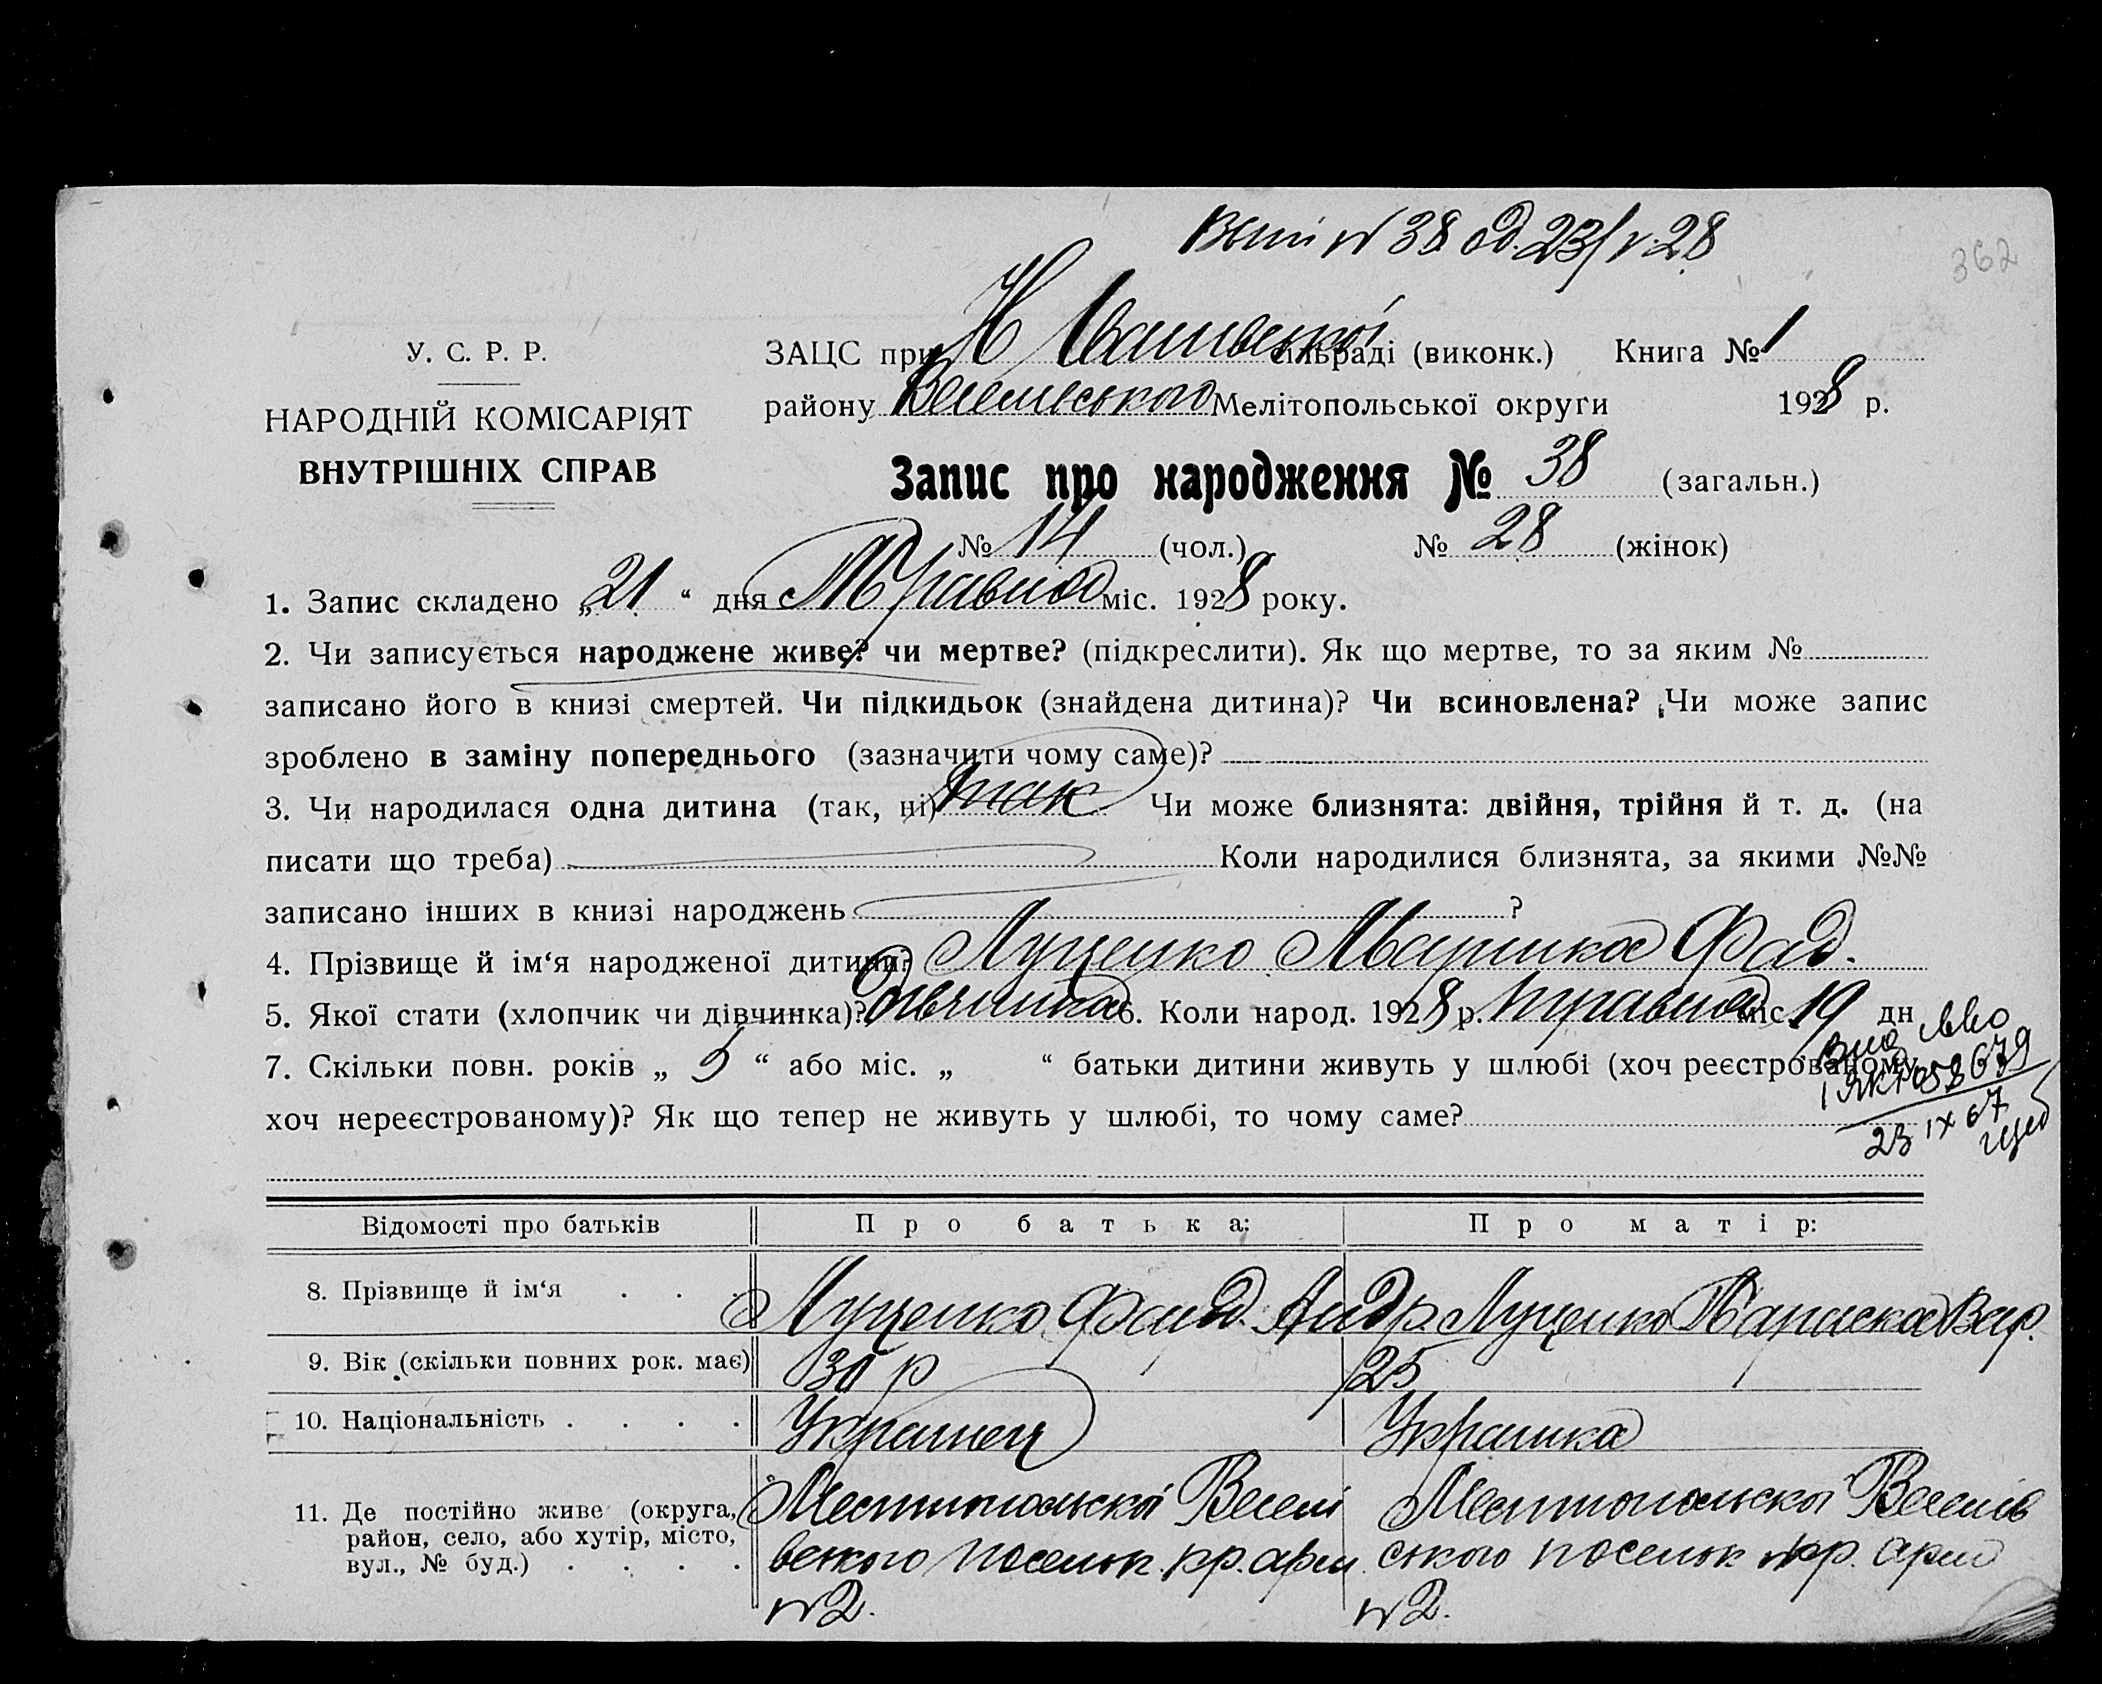 Вып N 38 од. 23/V 28
362
У. С. Р. Р.
НАРОДНІЙ КОМІСАРІЯТ
ВНУТРІШНІХ СПРАВ
ЗАЦС при Н сільраді (виконк.) Книга № 1
району Веселівського Мелітопольської округи 1928 р.
Запис про народження № 38 (загальн.)
№ 14 (чол.) № 28 (жінок)
1. Запис складено „21“ дня Травня міс. 1928 року.
2. Чи записується народжене живе? чи мертве? (підкреслити). Як що мертве, то за яким №
записано його в книзі смертей. Чи підкидьок (знайдена дитина)? Чи всиновлена? Чи може запис
зроблено в заміну попереднього (зазначити чому саме)?
3. Чи народилася одна дитина (так, ні) так Чи може близнята: двійня, трійня й т. д. (на
писати що треба) Коли народилися близнята, за якими №№
записано інших в книзі народжень ?
4. Прізвище й ім‘я народженої дитини? Луценко Маринка Фад.
5. Якої стати (хлопчик чи дівчинка)? дівчинка 6. Коли народ. 1928 р. травня міс. 19 дн
7. Скільки повн. років „ 5 “ або міс. „ “ батьки дитини живуть у шлюбі (хоч реєстрованому,
хоч нереєстрованому)? Як що тепер не живуть у шлюбі, то чому саме?
23 IX 67
Відомості про батьків Про батька: Про матір:
8. Прізвище й ім‘я . . . Луценко Фад. Андр. Луценко Параска Вар.
9. Вік (скільки повних рок. має) 30 р 25
10. Національність . . . . Українец Українка
11. Де постійно живе (округа, район, село, або хутір, місто, вул., № буд.) . . . .
Мелітопольскої Веселі
вського поселок. кр. арм.
N2.
Мелітопольскої Веселів
ського поселок кр. арм
N2.